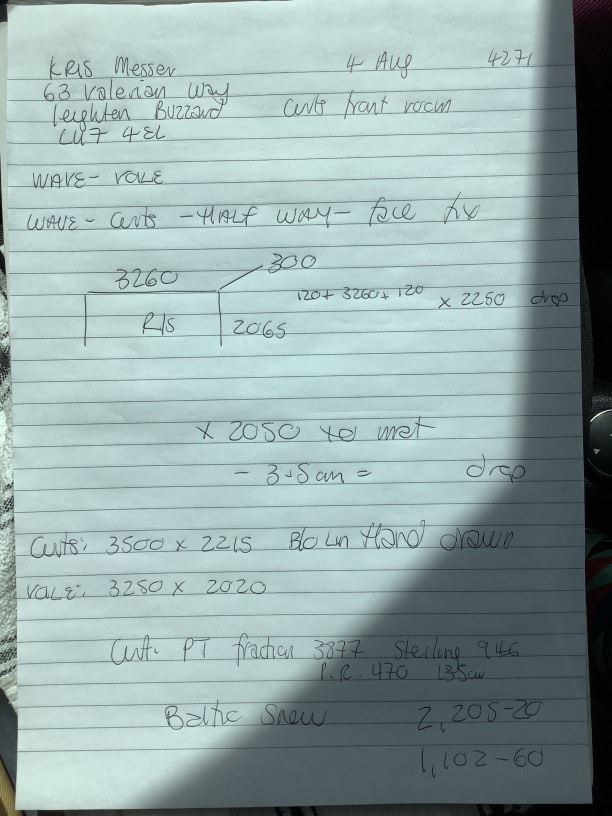 KRIS Messer 4 Aug 4271
63 Valerian Way
Leighten Buzzard Curts front room
LU7 4EL
WAVE - VOILE
WAVE - Curts - HALF WAY - face fix
3260 300
120 + 3260 + 120 x 2250 drop
R/S 2065
x 2050 to met
- 3.5cm = drop
Curts: 3500 x 2215 BO Ln Hand drawn
VOILE: 3250 x 2020
Curt. PT fraction 3877 Sterling 946
P.R. 470 135cm
Baltic Snow 2,205-20
1,102-60